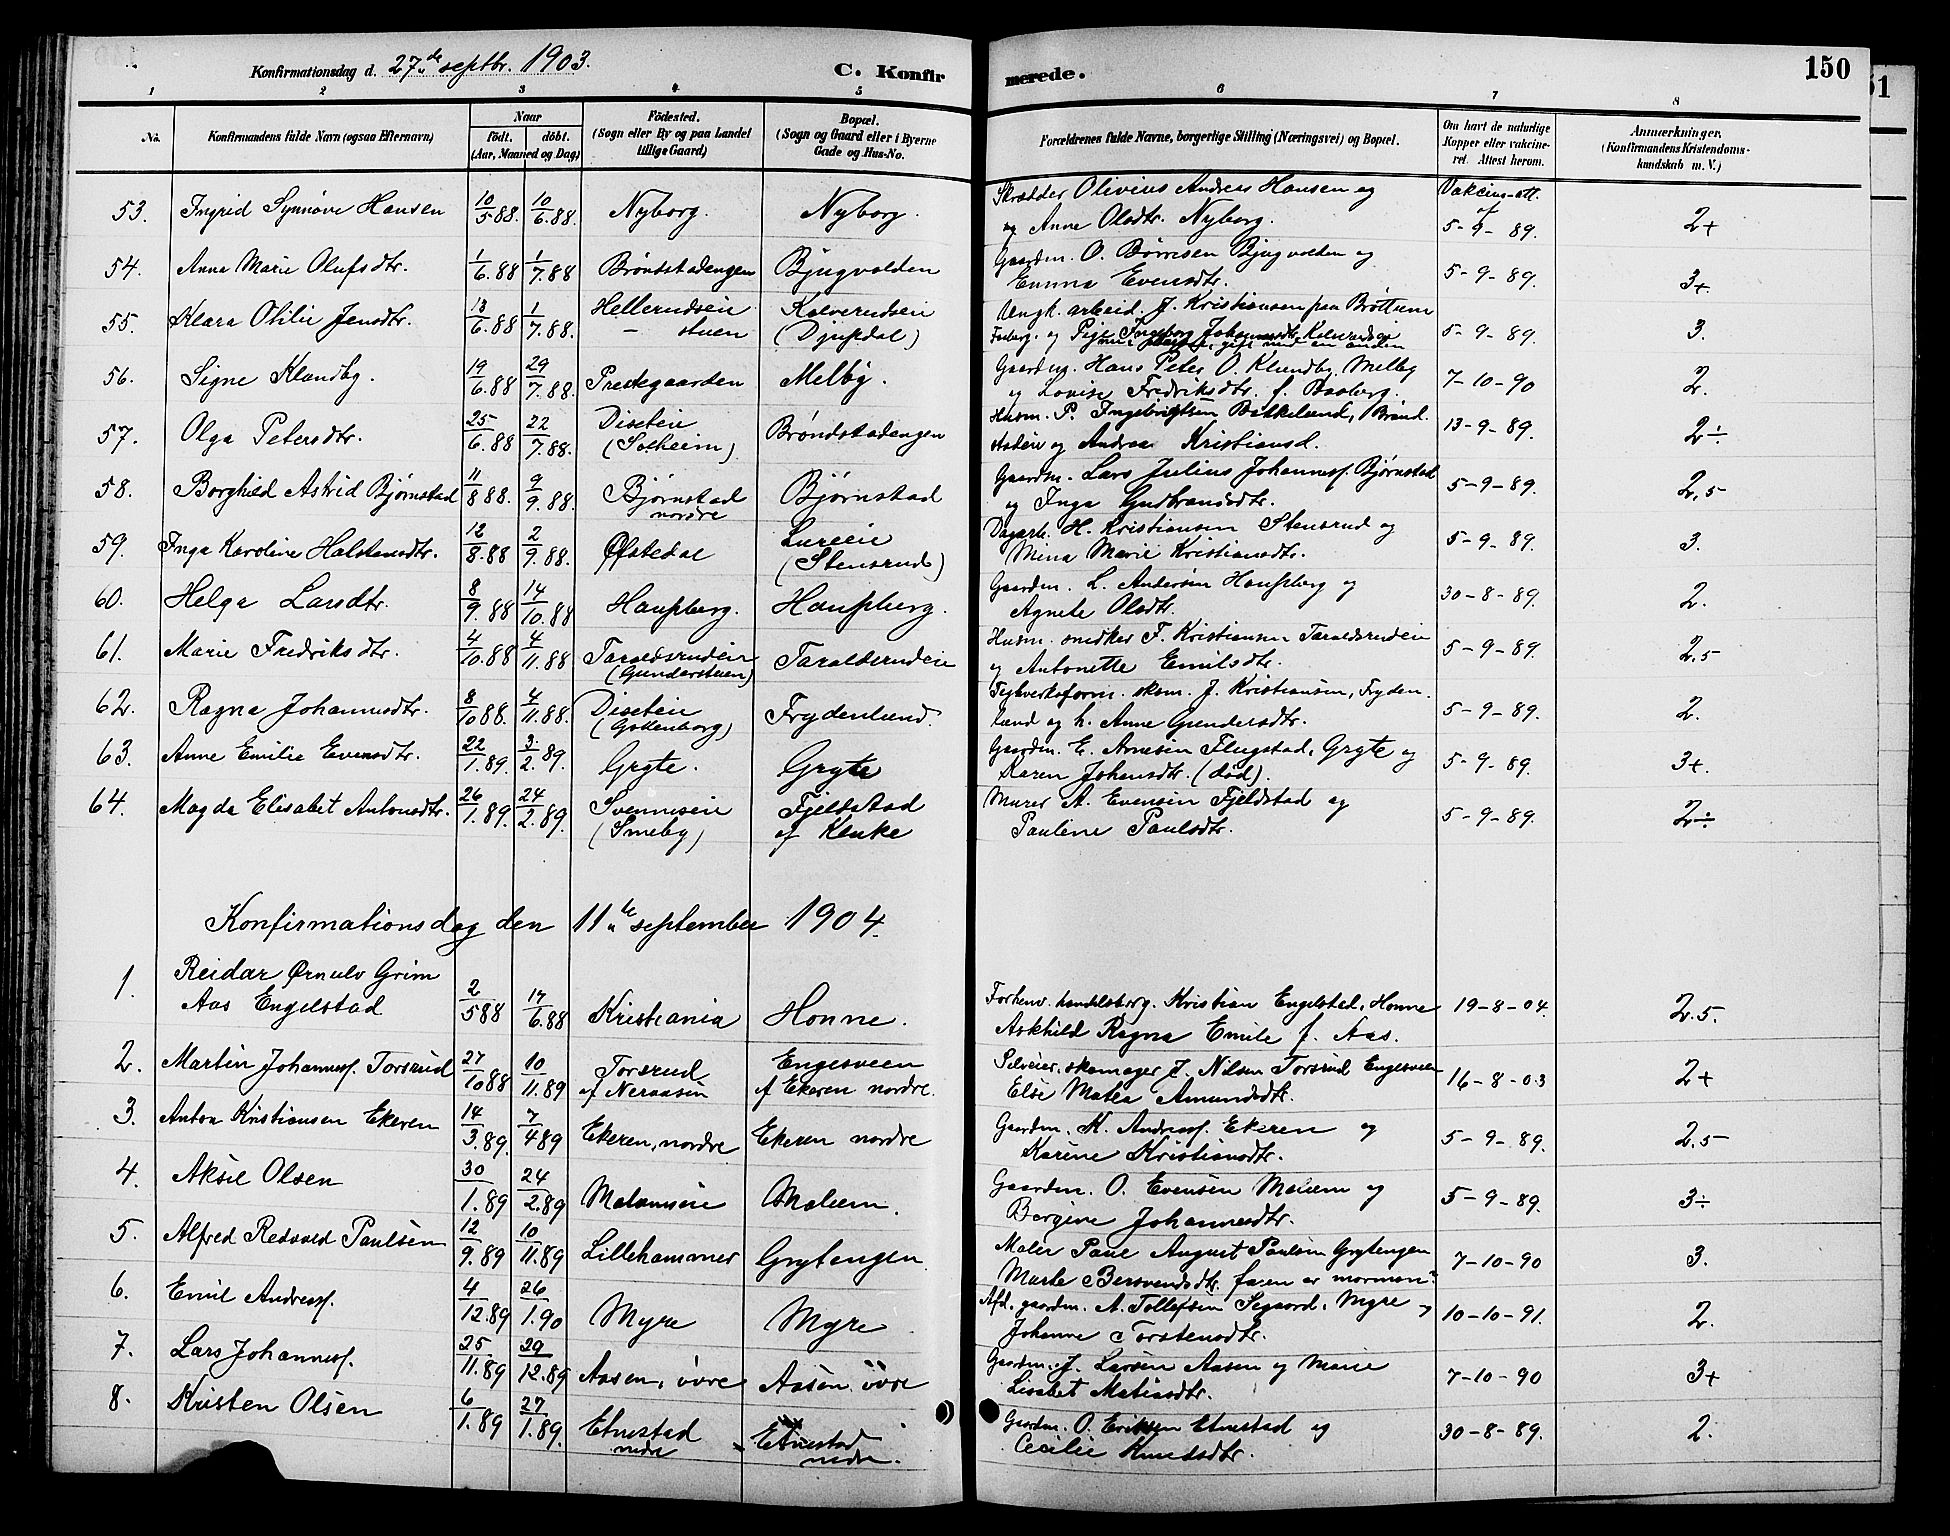 Konfirmationsdag d. 27de septbr. 1903.
C. Konfirmerede.
150
51
1 2 3 4 5 6 7 8
No.
Konfirmandens fulde Navn (ogsaa Efternavn)
Naar
födt. döbt.
(Aar, Maaned og Dag)
Födested.
(Sogn eller By og paa Landet
tillige Gaard)
Bopæl.
(Sogn og Gaard eller i Byerne
Gade og Hus-No.
Forældrenes fulde Navne, borgerlige Stilling (Næringsvei) og Bopæl.
Om havt de naturlige
Kopper eller vakcine-
ret. Attest herom.
Anmærkninger.
(Konfirmandens Kristendoms-
kundskab m. V.)
53. Ingrid Synnøve Hansen 10/5 88. 10/6.88. Nyborg. Nyborg. Skrædder Olivius Andreas Hansen og Vakcins-att.
og Anne Olsdtr. Nyborg. 5-9-89. 2+
54. Anna Marie Olufsdtr. 1/6.88 1/7.88 Brøndstadengen Bjugvolden Gaardm. O. Børresen Bjugvolden og
Emma Evensdtr. 5-9-89. 3+
55. Klara Otilie Jensdtr. 13/6.88 1/7.88. Hellerudseie Kalverudseie Ungk. arbeid. J. Kristiansen paa Brøttum
- stuen (Djupdal) og Pige Ingeborg Johannesdtr. 5-9-89. 3.
56. Signe Klundby. 19/6.88 29/7.88. Prestegaarden Melby. Gaardm. Hans Peter O. Klundby, Melby
og Lovise Fredriksdtr. f. Baaberg. 7-10-90 2.
57. Olga Petersdtr. 25/6.88 22/7.88. Diseteie Brøndstadengen Husm. P. Ingebrigtsen Bakkelund, Brönd
(Solheim) stadeie og Andrea Kristiansd. 13-9-89. 2÷
58. Borghild Astrid Bjørnstad 11/8 88. 9/9.88. Bjørnstad Bjørnstad Gaardm. Lars Julius Johannesf. Bjørnstad
nordre og Inga Gudbrandsdtr. 5-9-89. 2,5
59. Inga Karoline Halstensdtr. 12/8.88 2/9.88. Ofstedal Lureeie Dagarb. H. Kristiansen Stensrud og
(Stensrud) Mina Marie Kristiansdtr. 5-9-89. 3.
60. Helga Larsdtr. 8/9.88 14/10.88 Houfberg. Houfberg. Gaardm. L. Andersen Houfberg og
Agnete Olsdtr. 30-8-89. 2.
61. Marie Fredriksdtr. 4/10.88 4/11.88 Taraldsrudeie Taraldsrudeie Husm. snedker F. Kristiansen Taraldsrudeie
(Gunderstuen) og Antonette Emilsdtr. 5-9-89. 2,5
62. Ragna Johannesdtr. 8/10 88. 4/11.88. Diseteie Frydenlund. Teglverksform. skom. J. Kristiansen, Fryden-
(Gøttenborg) lund og h. Anne Gundersdtr. 5-9-89. 2.
63. Anne Emilie Evensdtr. 22/1.89. 3/2.89. Gryte. Gryte Gaardm. E. Arnesen Flugstad, Gryte og
Karen Johansdtr. (död). 5-9-89. 3+.
64. Magda Elisabet Antonsdtr. 26/1.89. 24/2.89. Svenneseie Fjeldstad Murer A. Evensen Fjeldstad og
(Smeby) af Kluke Pauline Paulsdtr. 5-9-89. 2÷
Konfirmationsdag den 11te september 1904.
1. Reidar Ørnulv Grim
Aas Engelstad 2/5 88 17/6.88 Kristiania Honne. Forhenv. handelsborg. Kristian Engelstad, Honne 19-8-04. 2.5.
Askhild Ragna Emile f. Aas.
2. Martin Johannesf. Torsrud 27/10 88 10/11.89 Torsrud Engesveen Selveier, skomager J. Nilsen Torsrud Engesveen
af Neraasen af Ekeren nordre. Else Matea Amundsdtr. 16-8-03 2+
3. Anton Kristiansen Ekeren 14/3.89. 7/4 89 Ekeren, nordre Ekeren nordre Gaardm. K. Andreasf. Ekeren og
Karine Kristiansdtr. 5-9-89. 2.5
4. Aksel Olsen 30/1.89 24/2.89 Malumseie Malum. Gaardm. O. Evensen Malum og
Bergine Johannesdtr. 5-9-89. 3÷
5. Alfred Redvald Paulsen 12/9.89 10/11.89 Lillehammer Grytengen. Maler Paul August Paulsen Grytengen
Marte Bersvendsdtr. faren er mormon 7-10-90 3.
6. Emil Andreasf. 4/12.89 26/1.90 Myre Myre Afd. gaardm. A. Tollefsen Segaard, Myre og
Johanne Torstensdtr. 10-10-91. 2.
7. Lars Johannesf. 25/11.89 29/12.89 Aasen, övre Aasen övre Gaardm. J. Larsen Aasen og Marie
Lisabet Matiasdtr. 7-10-90 3+
8. Kristen Olsen 6/1.89 27/1.89. Etnestad Etnestad Gaardm. O. Eriksen Etnestad og
nedre nedre. Cecilie Knudsdtr. 30-8-89. 2.